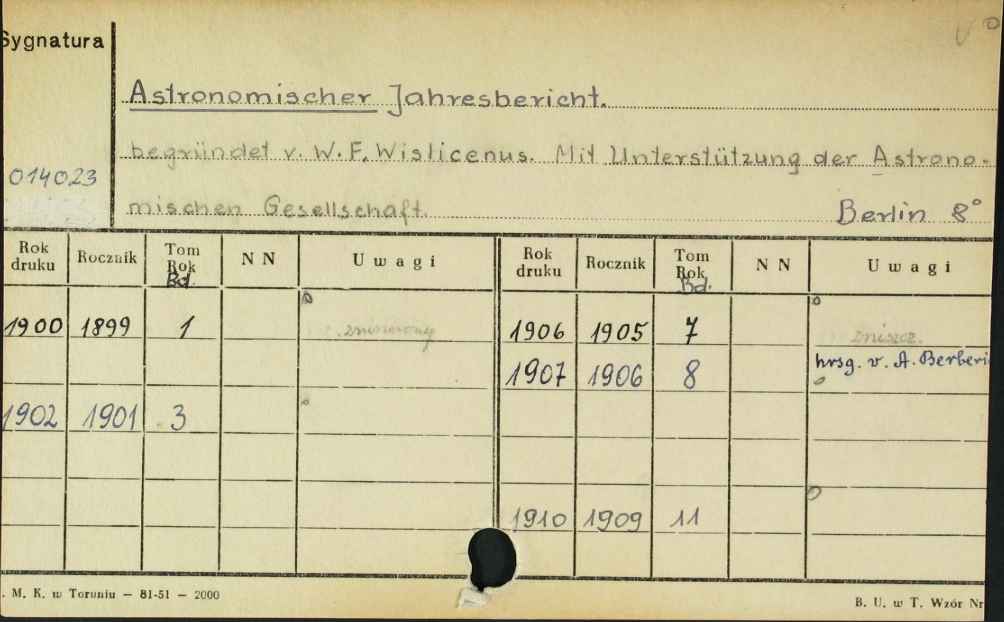 Sygnatura
Astronomischer Jahresbericht.
begründet v. W. F. Wislicenus. Mit Unterstützung der Astrono-
014023
mischen Gesellschaft. Berlin 8°
Rok druku Rocznik Tom Rok Bd. N N Uwagi Rok druku Rocznik Tom Rok Bd. N N Uwagi
1900 1899 1 1906 1905 7 zniszcz.
1907 1906 8 hrsg. v. A. Berberi
1902 1901 3
1910 1909 11
. M. K. w Toruniu — 81-51 — 2000
B. U. w T. Wzór Nr